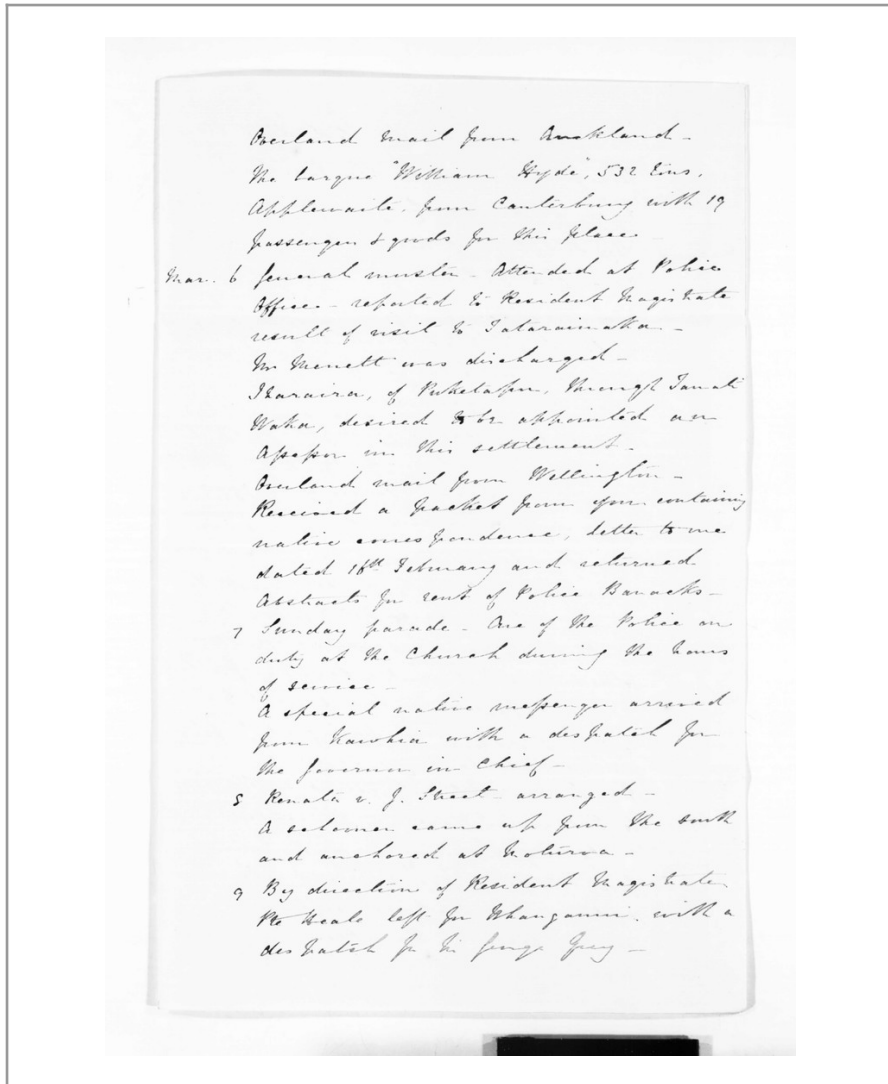 Overland mail from Auckland -
The barque "William Hyde", 532 tons,
Applewaite, from Canterbury with 19
passengers & goods for this place -
Mar. 6 General muster - Attended at Police
Office - reported to Resident Magistrate
result of visit to Tataraimaka -
Mr was discharged -
Iharaira, of Puketapu, through Tamati
Waka, desired to be appointed an
Assessor in this settlement -
Overland mail from Wellington -
Received a packet from you containing
native correspondence, letter to me
dated 18th February and returned
Abstracts for rent of Police Barracks -
7 Sunday parade - One of the Police on
duty at the Church during the hours
of service -
A special native messenger arrived
from Kawhia with a despatch for
the Governor in Chief -
8 Renata v. J. Street - arranged -
A schooner came up from the South
and anchored at Moturoa -
9 By direction of Resident Magistrate
Pte left for Whanganui, with a
despatch for Sir George Grey -